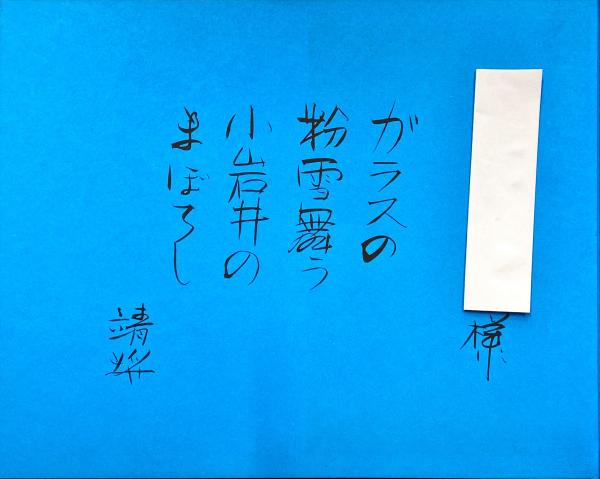 様
ガラスの
粉雪舞う
小岩井の
まぼろし